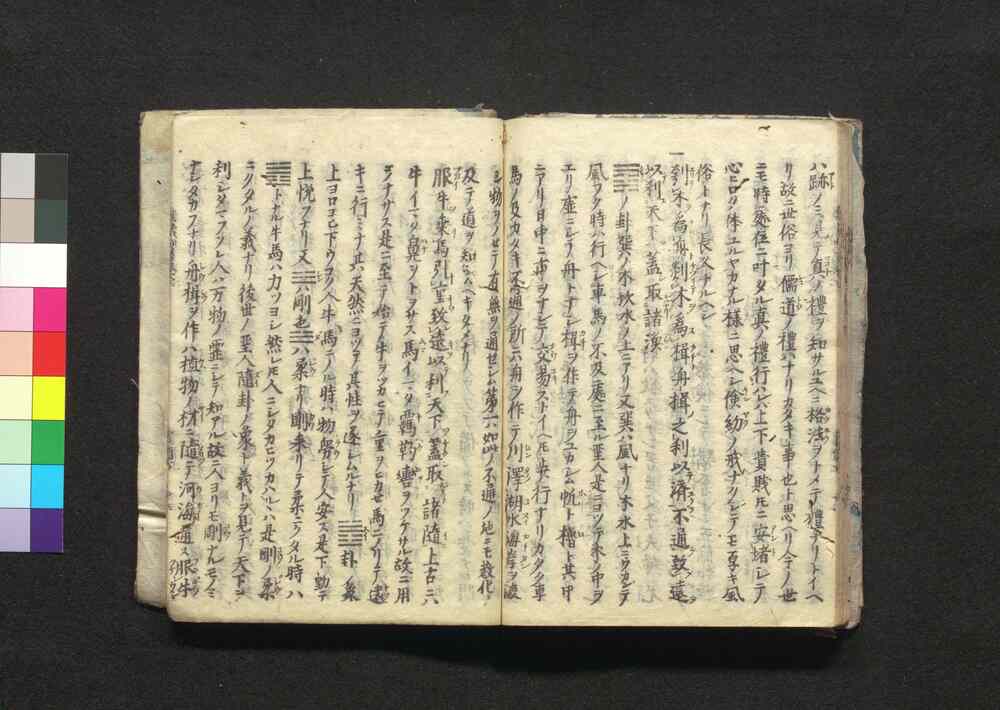 ハ跡ノミヲ見テ真ノ禮ヲ知サルユヘニ格法ヲトメテ禮ナリトイヘ
リ故ニ世俗ヨリ儒道ノ禮ハナリカタキ事也ト思ヘリ今ノ世
ニモ時処位ニ叶タル真ノ禮行ハレハ上下貴賤トモニ安堵シテ
心ヒロク体ユルヤカナル様ニ思ヘシ倹約ノ戒ナクシテモ有ヘキ風
俗トナリ長久ナルヘシ
一刳木為舟剡木為楫舟楫之利以済不通致遠
以利天下蓋取諸渙
ノ卦巽ハ木坎水ノ上ニアリ又巽ハ風ナリ木水上ニウカンテ
風フク時ハ行ヘシ車馬ノ不及處ニ至ル聖人是ニヨツテ木ノ中ヲ
エリ虚ニシテ舟トナシ楫ヲ作テ舟ヲユカシム帆ト櫓ト其中
ニアリ日中ニ市ヲナシテ交易ストイヘトモ央行ナリカタク車
馬ノ及カタキ不通ノ所ニハ舟ヲ作テ川澤湖水海岸ヲ渡
シ物ヲノセテ有無ヲ通セシム第一ハ如此ノ不通ノ地ニモ教化ヲ
及テ道ヲ知シムヘキタメナリ
服牛乗馬引重致遠以利天下蓋取諸隨上古ニハ
牛イマタ鼻ヲトヲサス馬イマタ羈靮轡ヲツケサル故ニ用
ヲナサス是ニ至テ始テ牛ヲツカヒテ重ヲヒカセ馬ニノリテ遠
キニ行ミナ其天然ニヨツテ其性ヲ遂シムルナリ 卦ノ象
上ヨロコヒ下ウコク人牛馬ニノル時ハ物労シテ人安ス是下動テ
上悦フナリ又 ハ剛也 ハ柔ナリ剛来リテ柔ニクタル時ハ
トナル牛馬ハ力ツヨシ然レトモ人ニシタカヒツカハルヽハ是剛ノ柔
ニクタルノ義ナリ後世ノ聖人隨卦ノ象ト義トヲ見テ天下ヲ
利シタマフソレ人ハ万物ノ霊ニシテ知アル故ニ人ヨリモ剛ナルモノモミ
ナシタカフナリ舟楫ヲ作ハ植物ノ材ニ隨テ河海ヲ通ス服牛